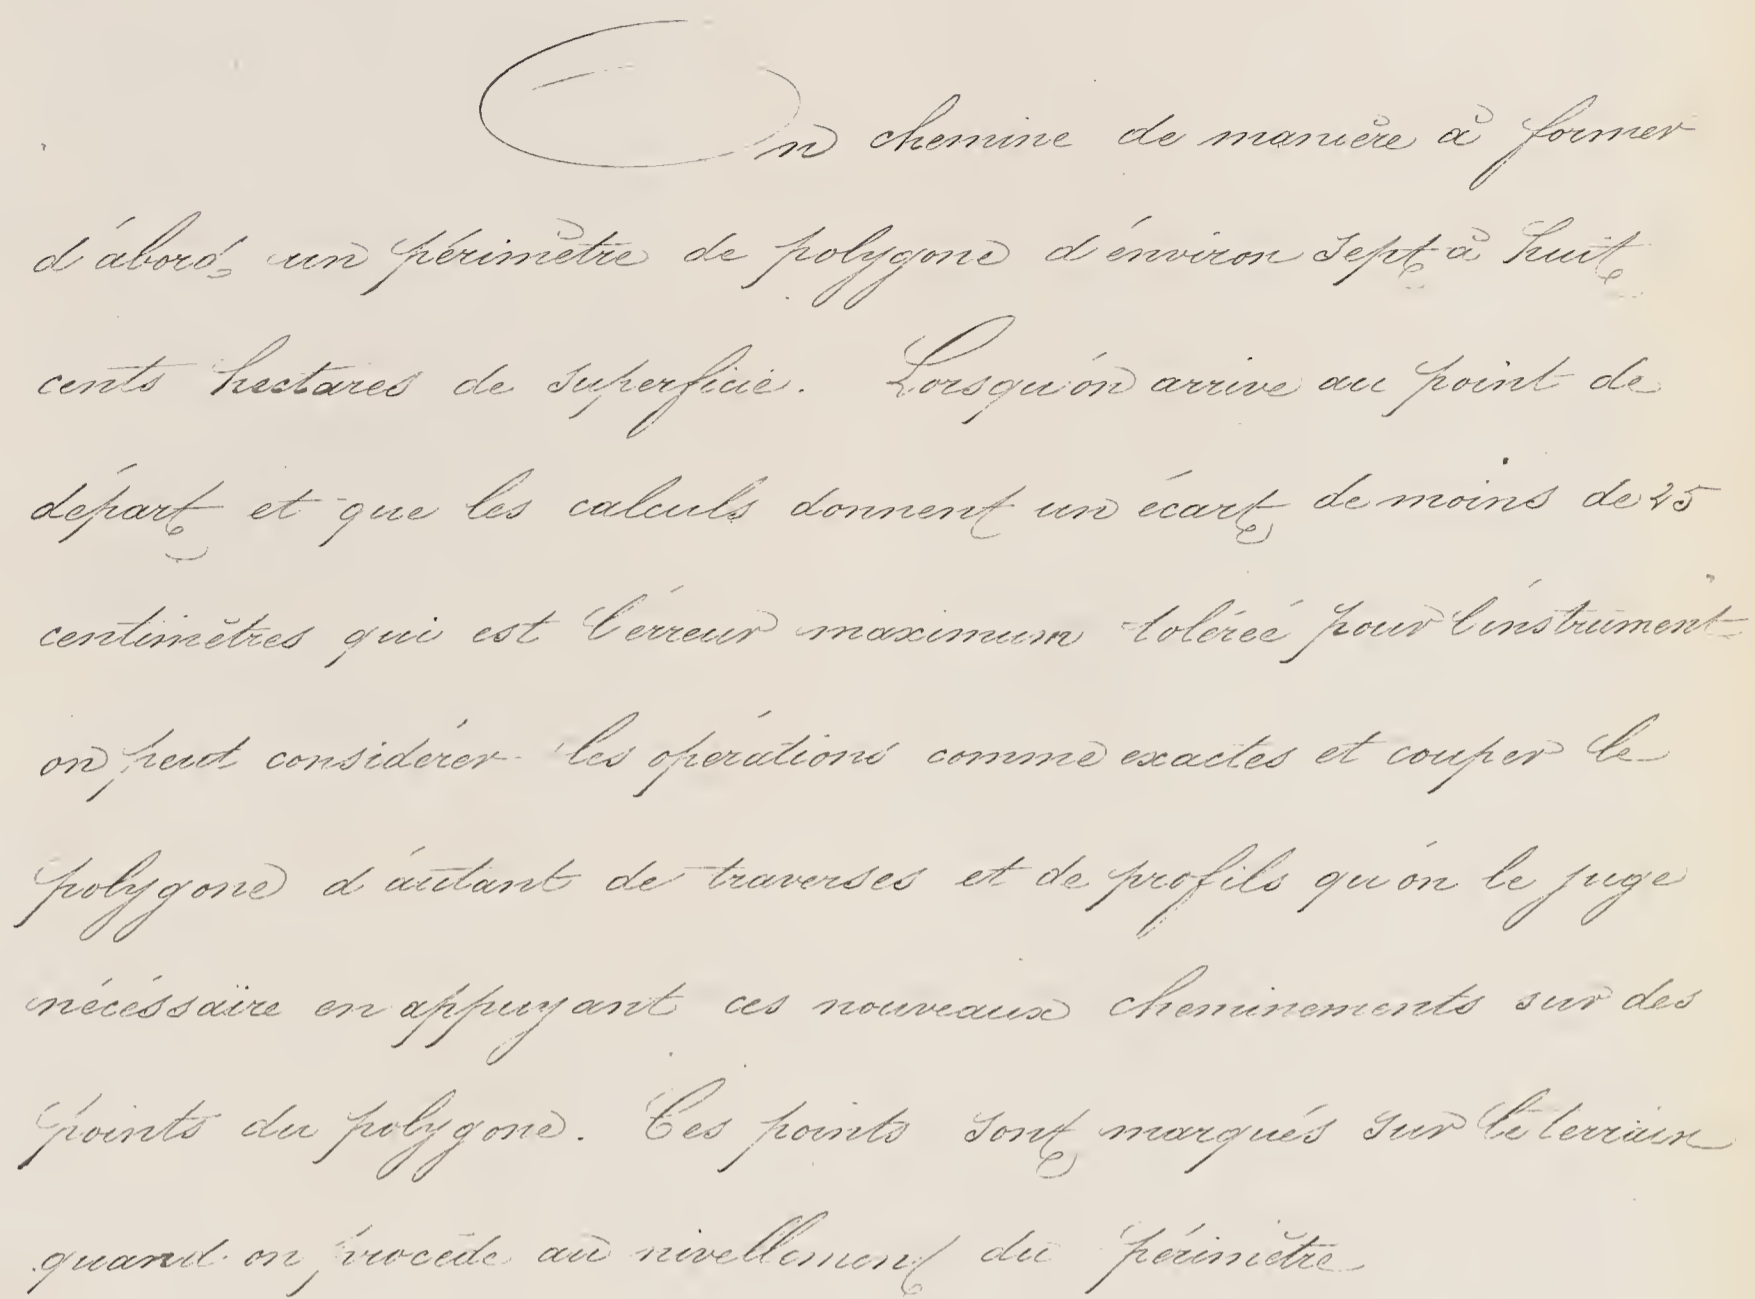 On chemine de manière à former
d'abord un périmètre de polygone d'environ sept à huit
cents hectares de superficie. Lorsqu'on arrive au point de
départ et que les calculs donnent un écart de moins de 25
centimètres qui est l'erreur maximum tolérée pour l'instrument
on peut considérer les opérations comme exactes et couper le
polygone d'autant de traverses et de profils qu'on le juge
nécéssaire en appuyant ces nouveaux cheminements sur des
points du polygone. Ces points sont marqués sur le terrain
quand on procède au nivellement du périmètre